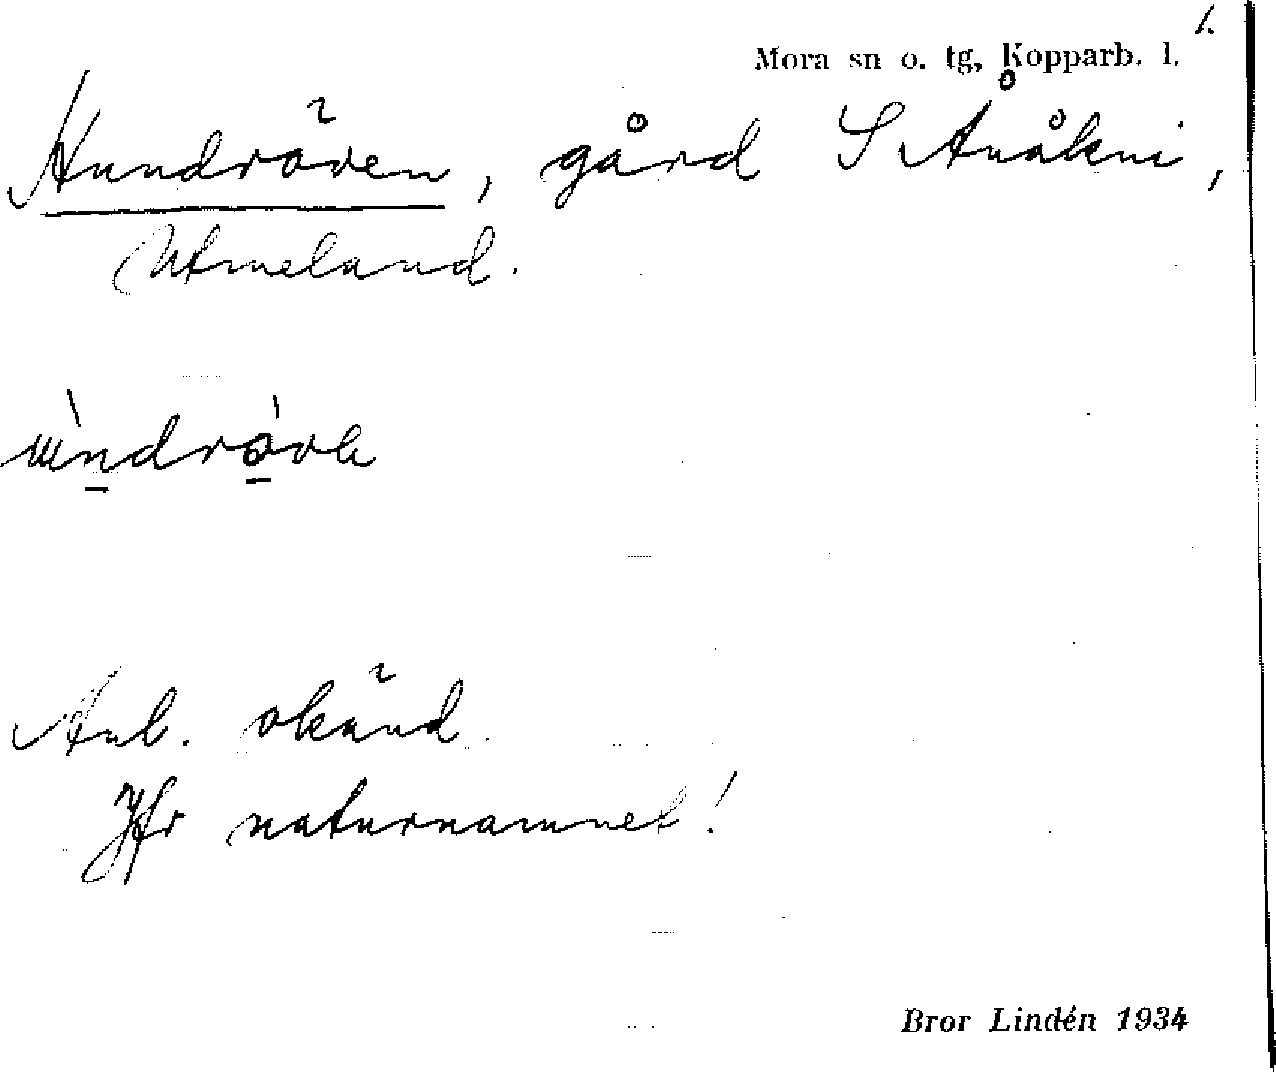 1.
Mora sn o. tg, Kopparb. l.
Hundröven, gård S Ånåkni,
Utmeland.
Anl. okänd.
Jfr naturnamnet!
Bror Lindén 1934